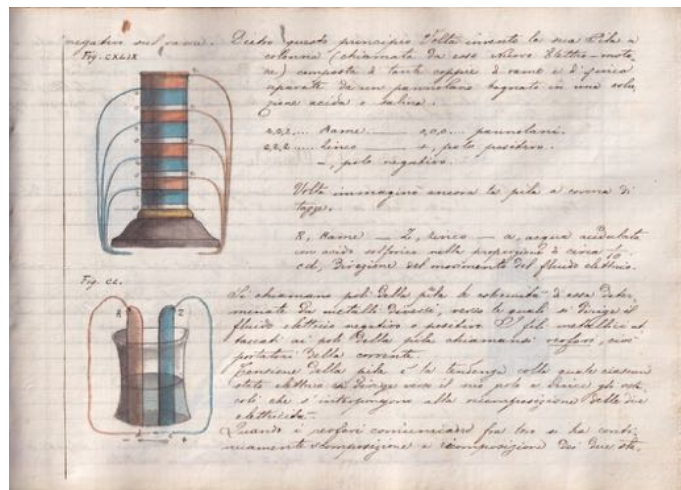 negativo sul rame. Dietro questo principio Volta inventò la sua Pila a
Fig. CXLIX
colonna (chiamata da esso Nuovo Elettro-moto-
re) composta di tante coppie di rame e di zinco
separate da un pannolano bagnato in una solu-
zione acida o salina.
r,r,r,.... Rame. ____ a,a,a.... pannolani.
z,z,z..... Zinco ____ +, polo positivo.
_, polo negativo.
Volta immaginò ancora la pila a corona di
tazze.
R, Rame __ Z, Zinco __ a, acqua acidulata
con acido solforico nella proporzione di circa 1/10.
cd, Direzione del movimento del fluido elettrico.
Fig. CL.
Si chiamano poli della pila le estremità di essa deter-
minate da metalli diversi, verso le quali si dirige il
fluido elettrico negativo e positivo. I fili metallici at-
taccati ai poli della pila chiamansi reofori, cioè
portatori della corrente.
Tensione della pila è la tendenza colla quale ciascuno
stato elettrico si dirige verso il suo polo e vince gli osta-
coli che s'interpongono alla ricomposizione delle due
elettricità.
Quando i reofori comunicano fra loro si ha conti-
nuamente scomposizione e ricomposizione dei due
R
Z